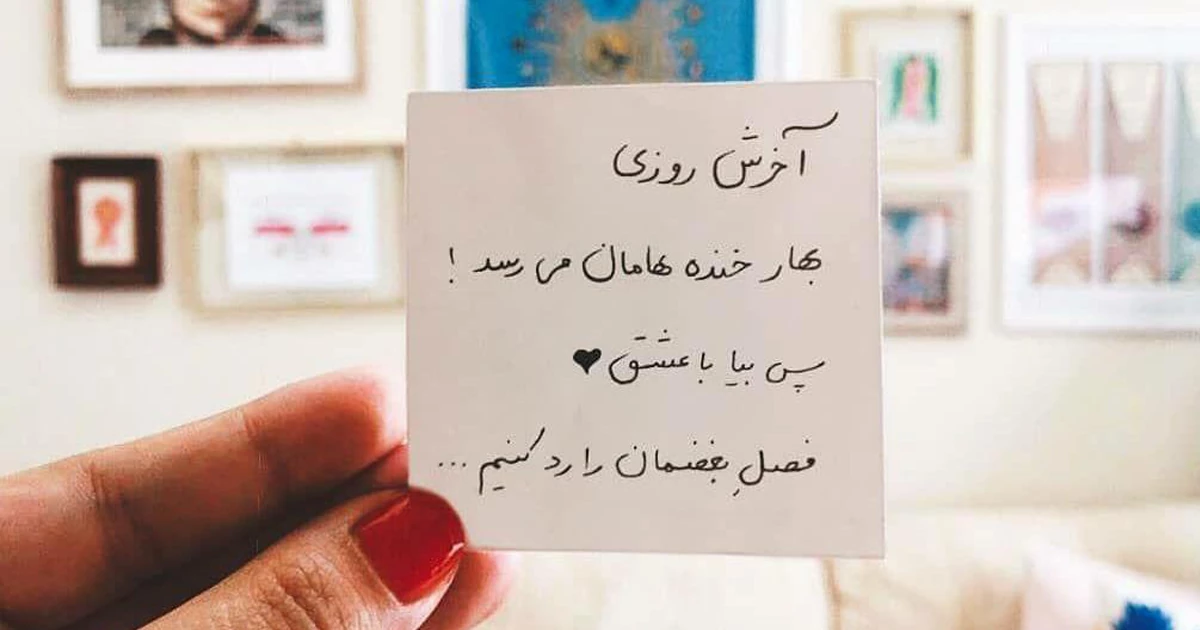 آخرش روزی
بهار خنده هامان می رسد !
پس بیا با عشق ♥
فصلِ بغضمان را رد کنیم ...